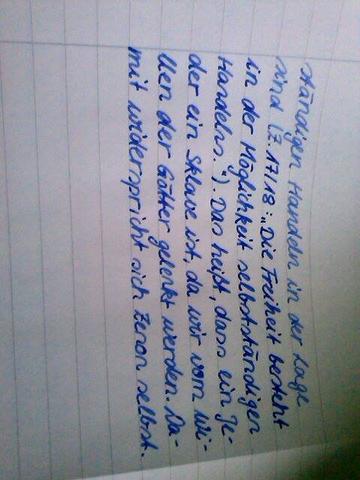 ständigen Handeln in der Lage
sind (Z. 17/18: „Die Freiheit besteht
in der Möglichkeit selbstständigen
Handelns."). Das heißt, dass ein Je-
der ein Sklave ist, da wir vom Wi-
llen der Götter gelenkt werden. Da-
mit widerspricht sich Zenon selbst.